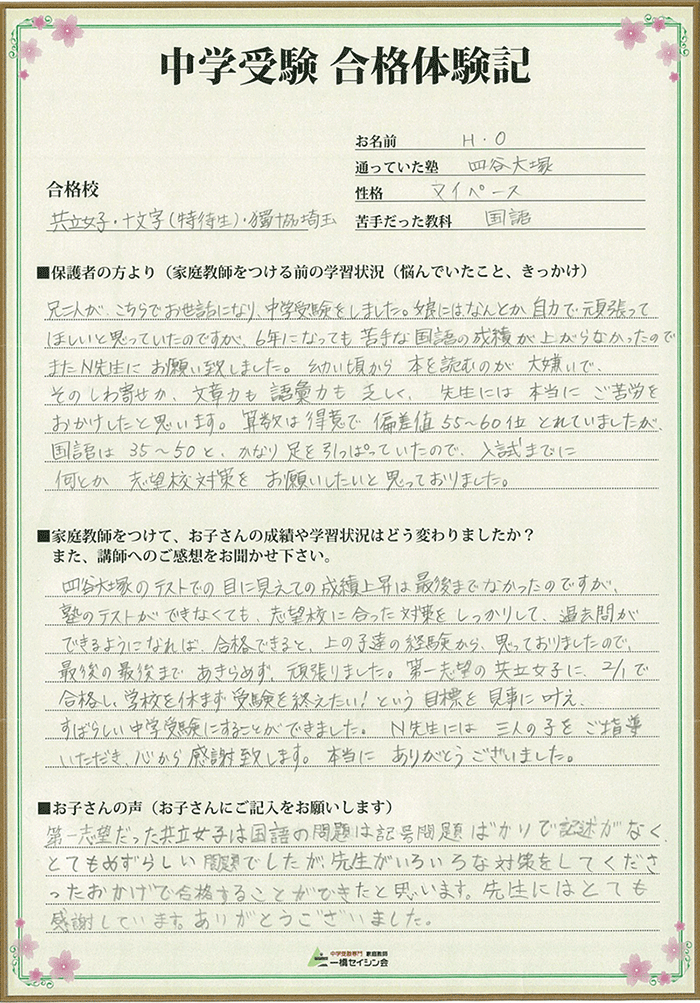 中学受験 合格体験記
お名前 H・O
通っていた塾 四谷大塚
性格 マイペース
苦手だった教科 国語
合格校
共立女子・十文字(特待生)・獨協埼玉
■保護者の方より（家庭教師をつける前の学習状況（悩んでいたこと、きっかけ）
兄二人が、こちらでお世話になり、中学受験をしました。娘にはなんとか自力で頑張って
ほしいと思っていたのですが、6年になっても苦手な国語の成績が上がらなかったので
またN先生にお願い致しました。幼い頃から本を読むのが大嫌いで、
そのしわ寄せか、文章力も語彙力も乏しく、先生には本当にご苦労を
おかけしたと思います。算数は得意で偏差値55～60位とれていましたが、
国語は35～50と、かなり足を引っぱっていたので、入試までに
何とか志望校対策をお願いしたいと思っておりました。
■家庭教師をつけて、お子さんの成績や学習状況はどう変わりましたか？
また、講師へのご感想をお聞かせ下さい。
四谷大塚のテストでの目に見えての成績上昇は最後までなかったのですが、
塾のテストができなくても、志望校に合った対策をしっかりして、過去問が
できるようになれば、合格できると、上の子達の経験から、思っておりましたので、
最後の最後まであきらめず、頑張りました。第一志望の共立女子に、2/1で
合格し、学校を休まず受験を終えたい！という目標を見事に叶え、
すばらしい中学受験にすることができました。N先生には三人の子をご指導
いただき、心から感謝致します。本当にありがとうございました。
■お子さんの声（お子さんにご記入をお願いします）
第一志望だった共立女子は国語の問題は記号問題ばかりで記述がなく、
とてもめずらしい問題でしたが、先生がいろいろな対策をしてくださ
ったおかげで合格することができたと思います。先生にはとても
感謝しています。ありがとうございました。
中学受験専門 家庭教師
一橋セイシン会